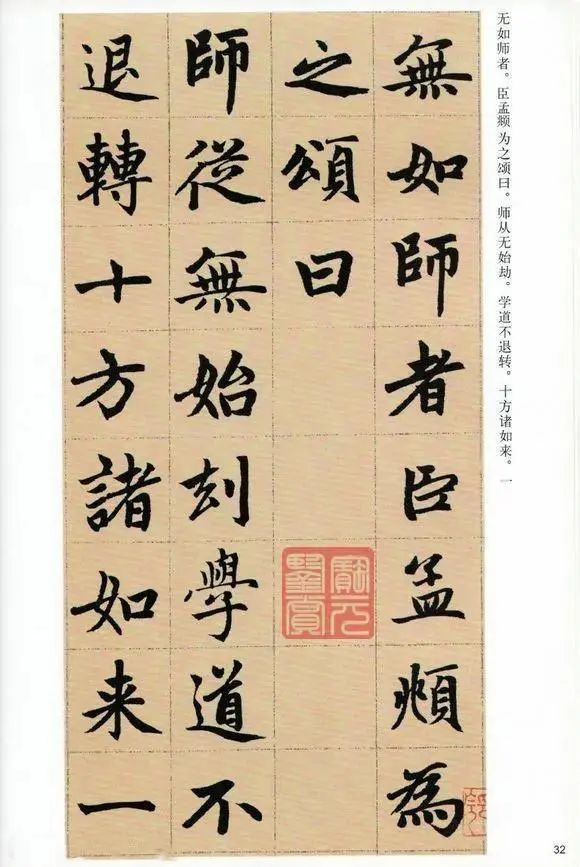 无如师者。臣孟𫖯为之颂曰。师从无始劫。学道不退转。十方诸如来。一
無如師者臣孟頫為
之頌曰
師從無始刧學道不
退轉十方諸如来一
32